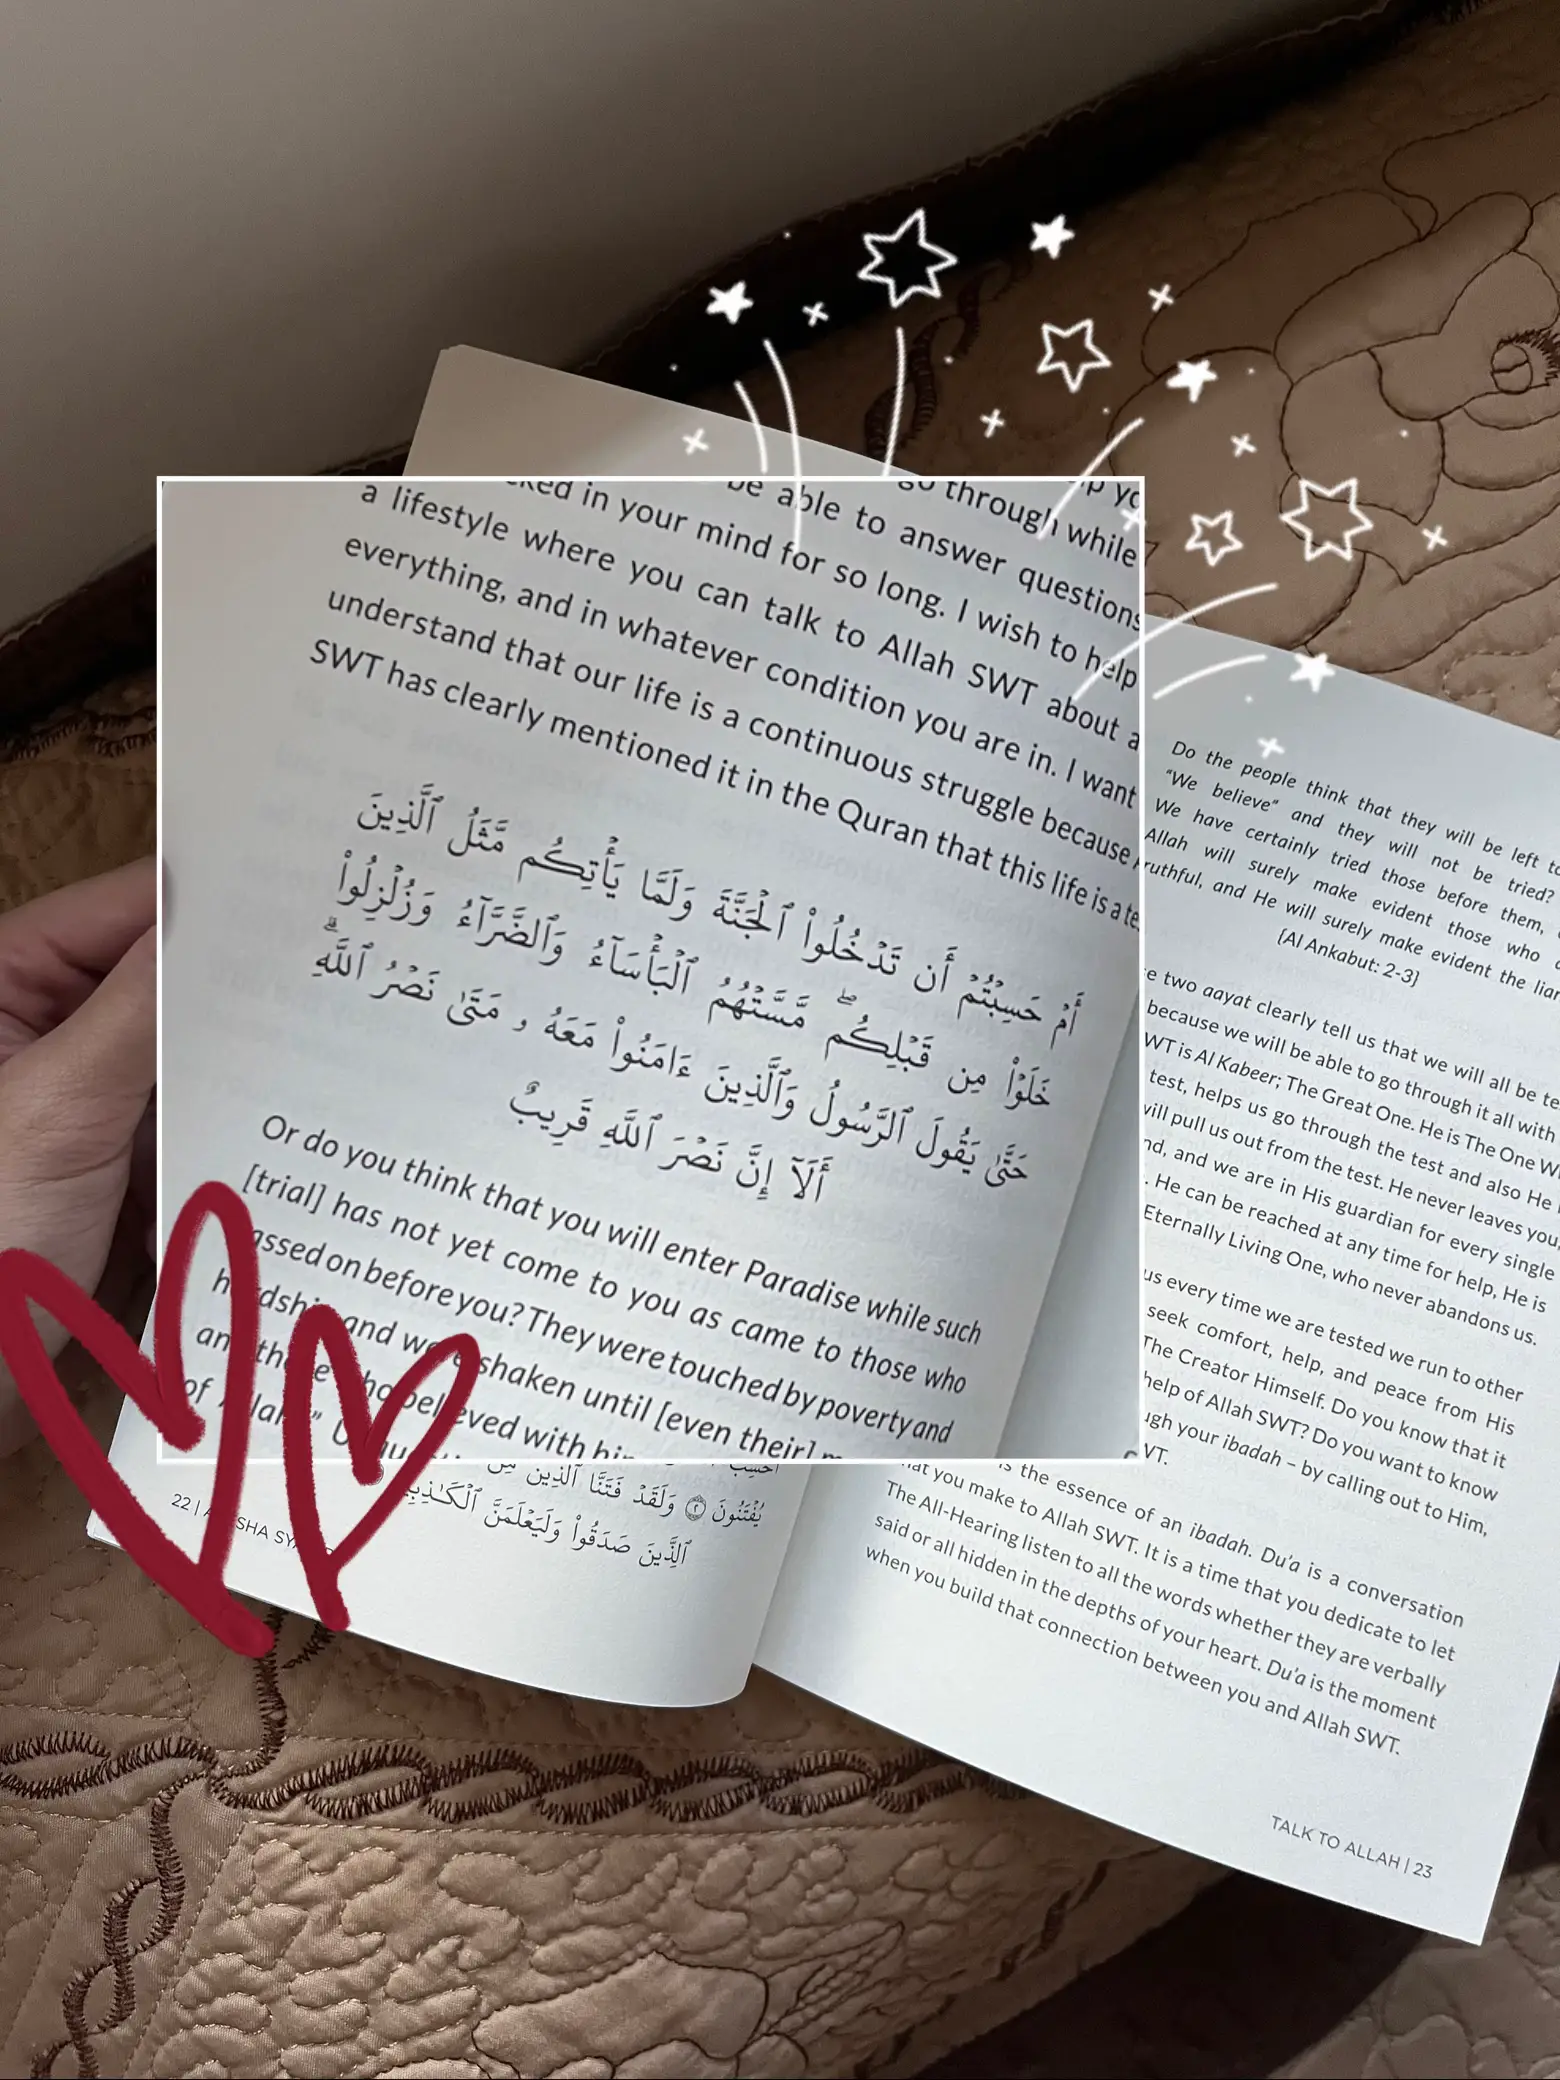 go through while
be able to answer questions
in your mind for so long. I wish to help
a lifestyle where you can talk to Allah SWT about
everything, and in whatever condition you are in. I want
understand that our life is a continuous struggle because
SWT has clearly mentioned it in the Quran that this life is a
أَمْ حَسِبْتُمْ أَن تَدْخُلُوا۟ ٱلْجَنَّةَ وَلَمَّا يَأْتِكُم مَّثَلُ ٱلَّذِينَ
خَلَوْا۟ مِن قَبْلِكُم ۖ مَّسَّتْهُمُ ٱلْبَأْسَآءُ وَٱلضَّرَّآءُ وَزُلْزِلُوا۟
حَتَّىٰ يَقُولَ ٱلرَّسُولُ وَٱلَّذِينَ ءَامَنُوا۟ مَعَهُۥ مَتَىٰ نَصْرُ ٱللَّهِ ۗ
أَلَآ إِنَّ نَصْرَ ٱللَّهِ قَرِيبٌ
Or do you think that you will enter Paradise while such
[trial] has not yet come to you as came to those who
passed on before you? They were touched by poverty and
hardship and were shaken until [even their]
and those who believed with
of Allah?"
يُفْتَنُونَ ٢ وَلَقَدْ فَتَنَّا ٱلَّذِينَ مِن
ٱلَّذِينَ صَدَقُوا۟ وَلَيَعْلَمَنَّ ٱلْكَـٰذِبِينَ
22 |
Do the people think that they will be left to
"We believe" and they will not be tried?
We have certainly tried those before them,
Allah will surely make evident those who
truthful, and He will surely make evident the
[Al Ankabut: 2-3]
two aayat clearly tell us that we will all be
because we will be able to go through it all with
SWT is Al Kabeer; The Great One. He is The One
test, helps us go through the test and also He
will pull us out from the test. He never leaves you,
and we are in His guardian for every single
He can be reached at any time for help, He is
Eternally Living One, who never abandons us.
us every time we are tested we run to other
seek comfort, help, and peace from His
The Creator Himself. Do you know that it
help of Allah SWT? Do you want to know
your ibadah – by calling out to Him,
is the essence of an ibadah. Du'a is a conversation
that you make to Allah SWT. It is a time that you dedicate to let
The All-Hearing listen to all the words whether they are verbally
said or all hidden in the depths of your heart. Du'a is the moment
when you build that connection between you and Allah SWT.
TALK TO ALLAH | 23